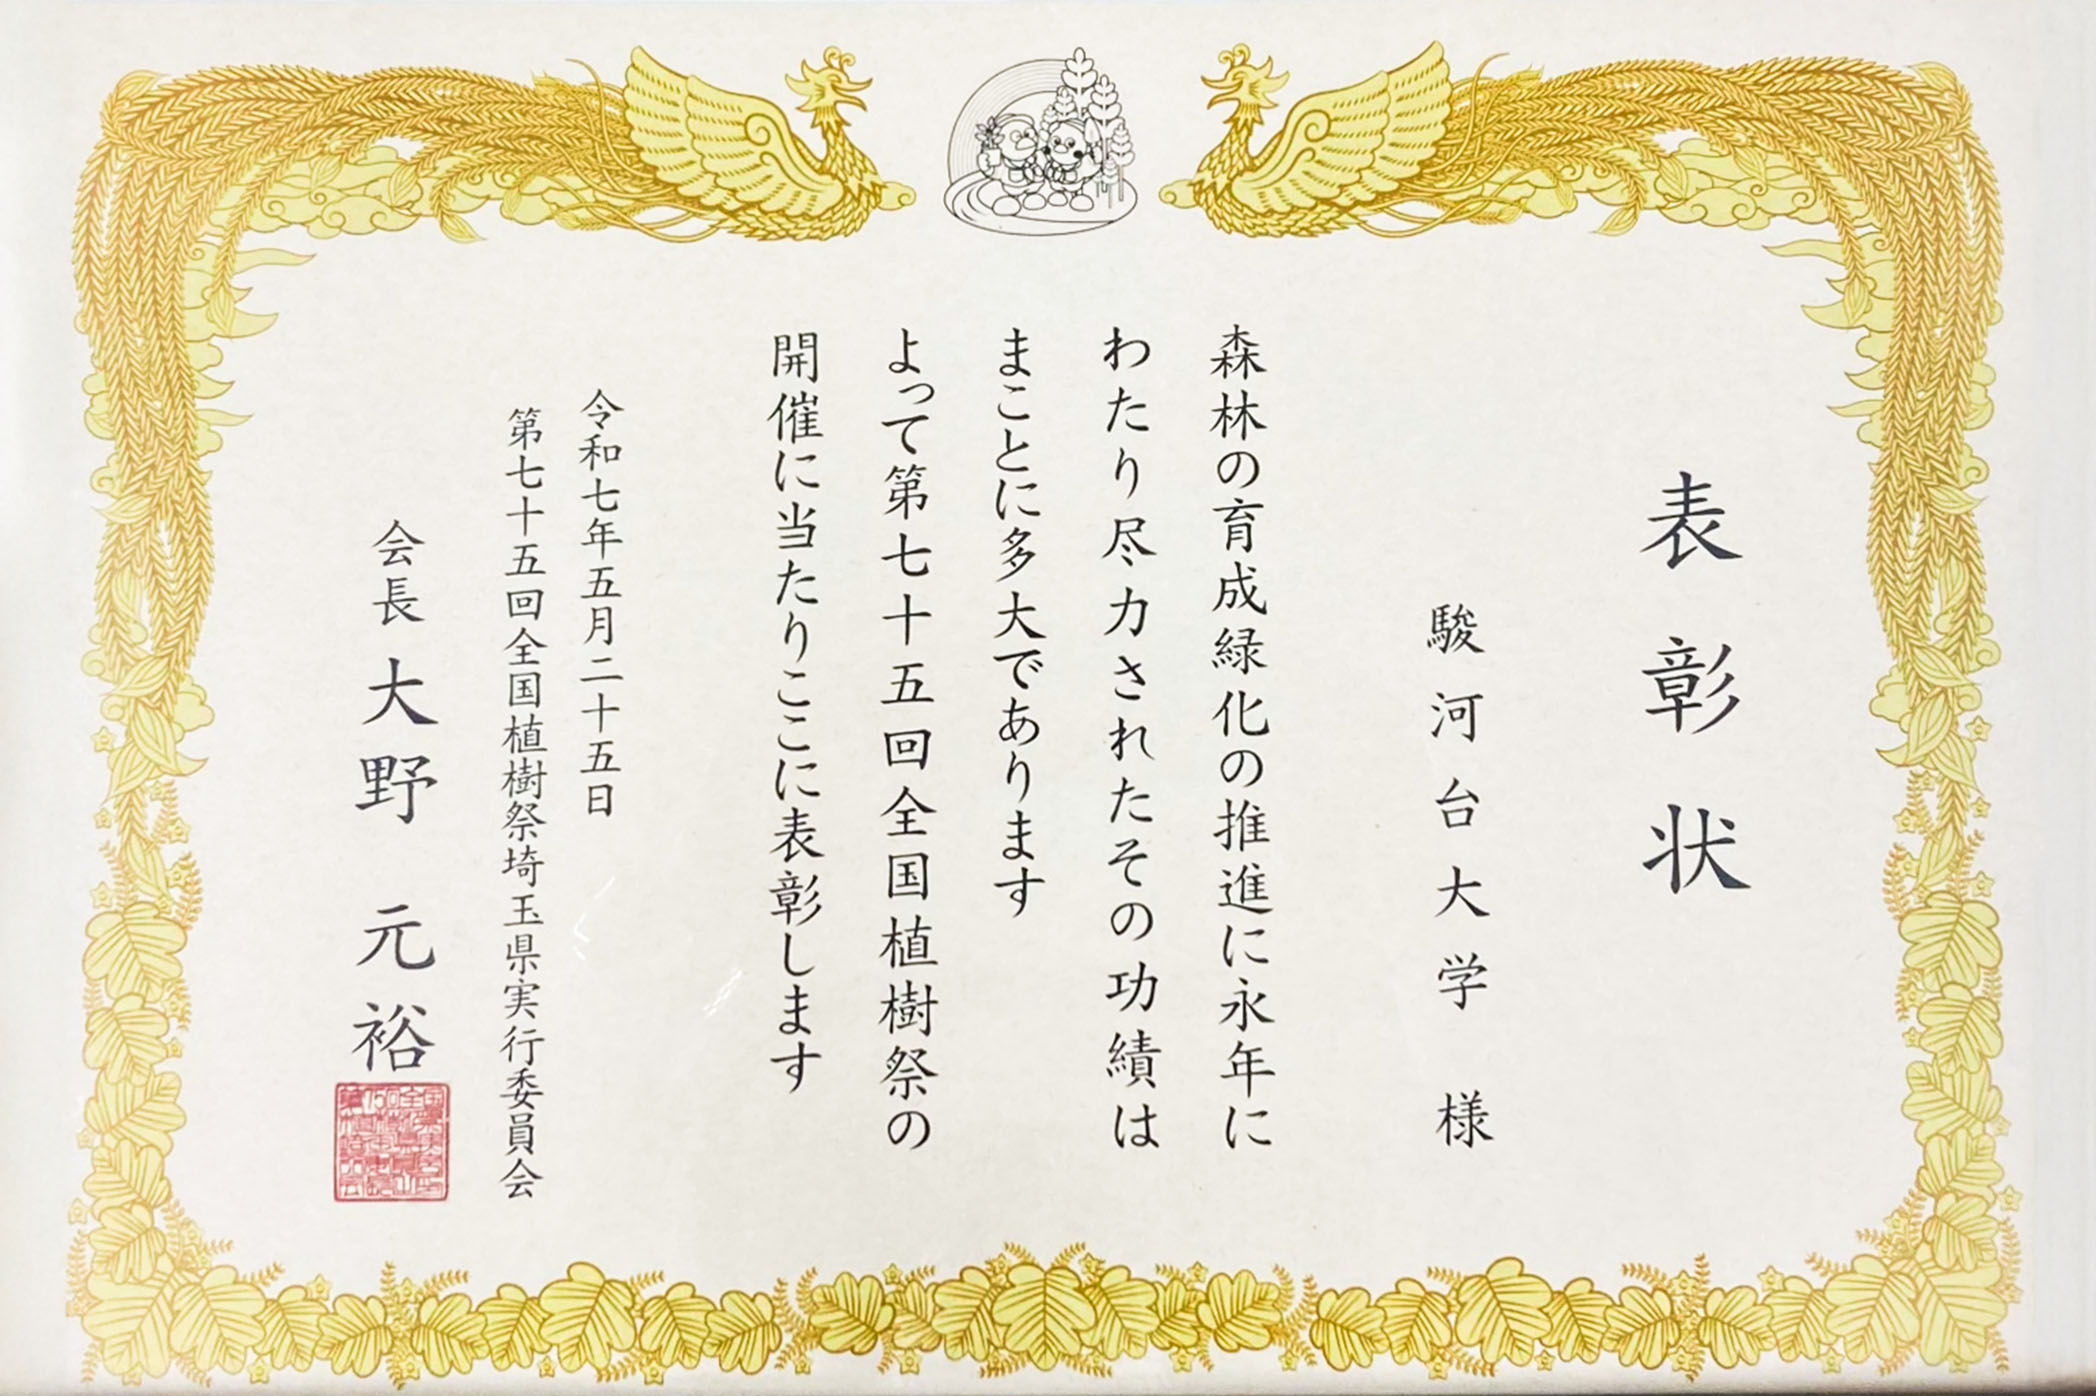 表彰状
駿河台大学 様
森林の育成緑化の推進に永年に
わたり尽力されたその功績は
まことに多大であります
よって第七十五回全国植樹祭の
開催に当たりここに表彰します
令和七年五月二十五日
第七十五回全国植樹祭埼玉県実行委員会
会長 大野 元裕